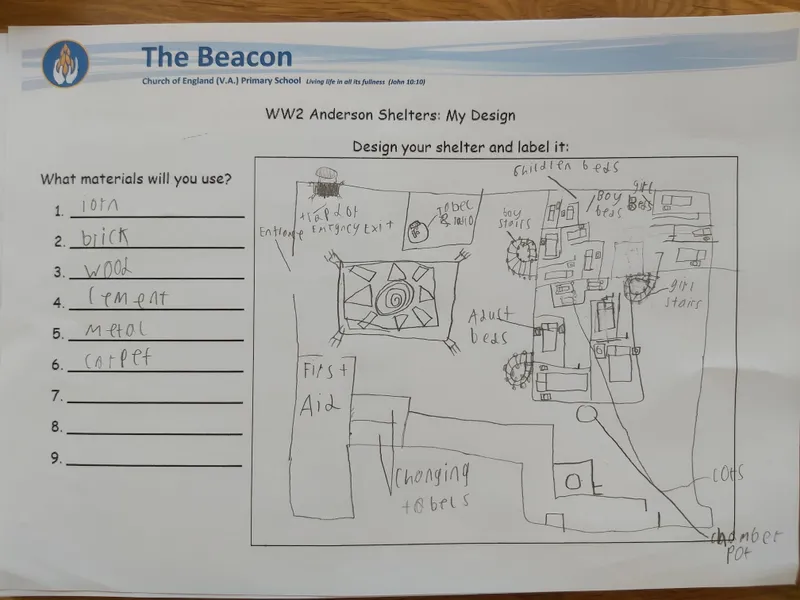 The Beacon
Church of England (V.A.) Primary School Living life in all its fullness (John 10:10)
WW2 Anderson Shelters: My Design
Design your shelter and label it:
What materials will you use?
1. iorn
2. brick
3. wood
4. cement
5. metal
6. carpet
7.
8.
9.
Children beds
boy
stairs
Boy
beds
girl
Beds
Entrance
Exit
& radio
girl
stairs
Adust
beds
First
Aid
Changing
tabels
cots
chamber
pot